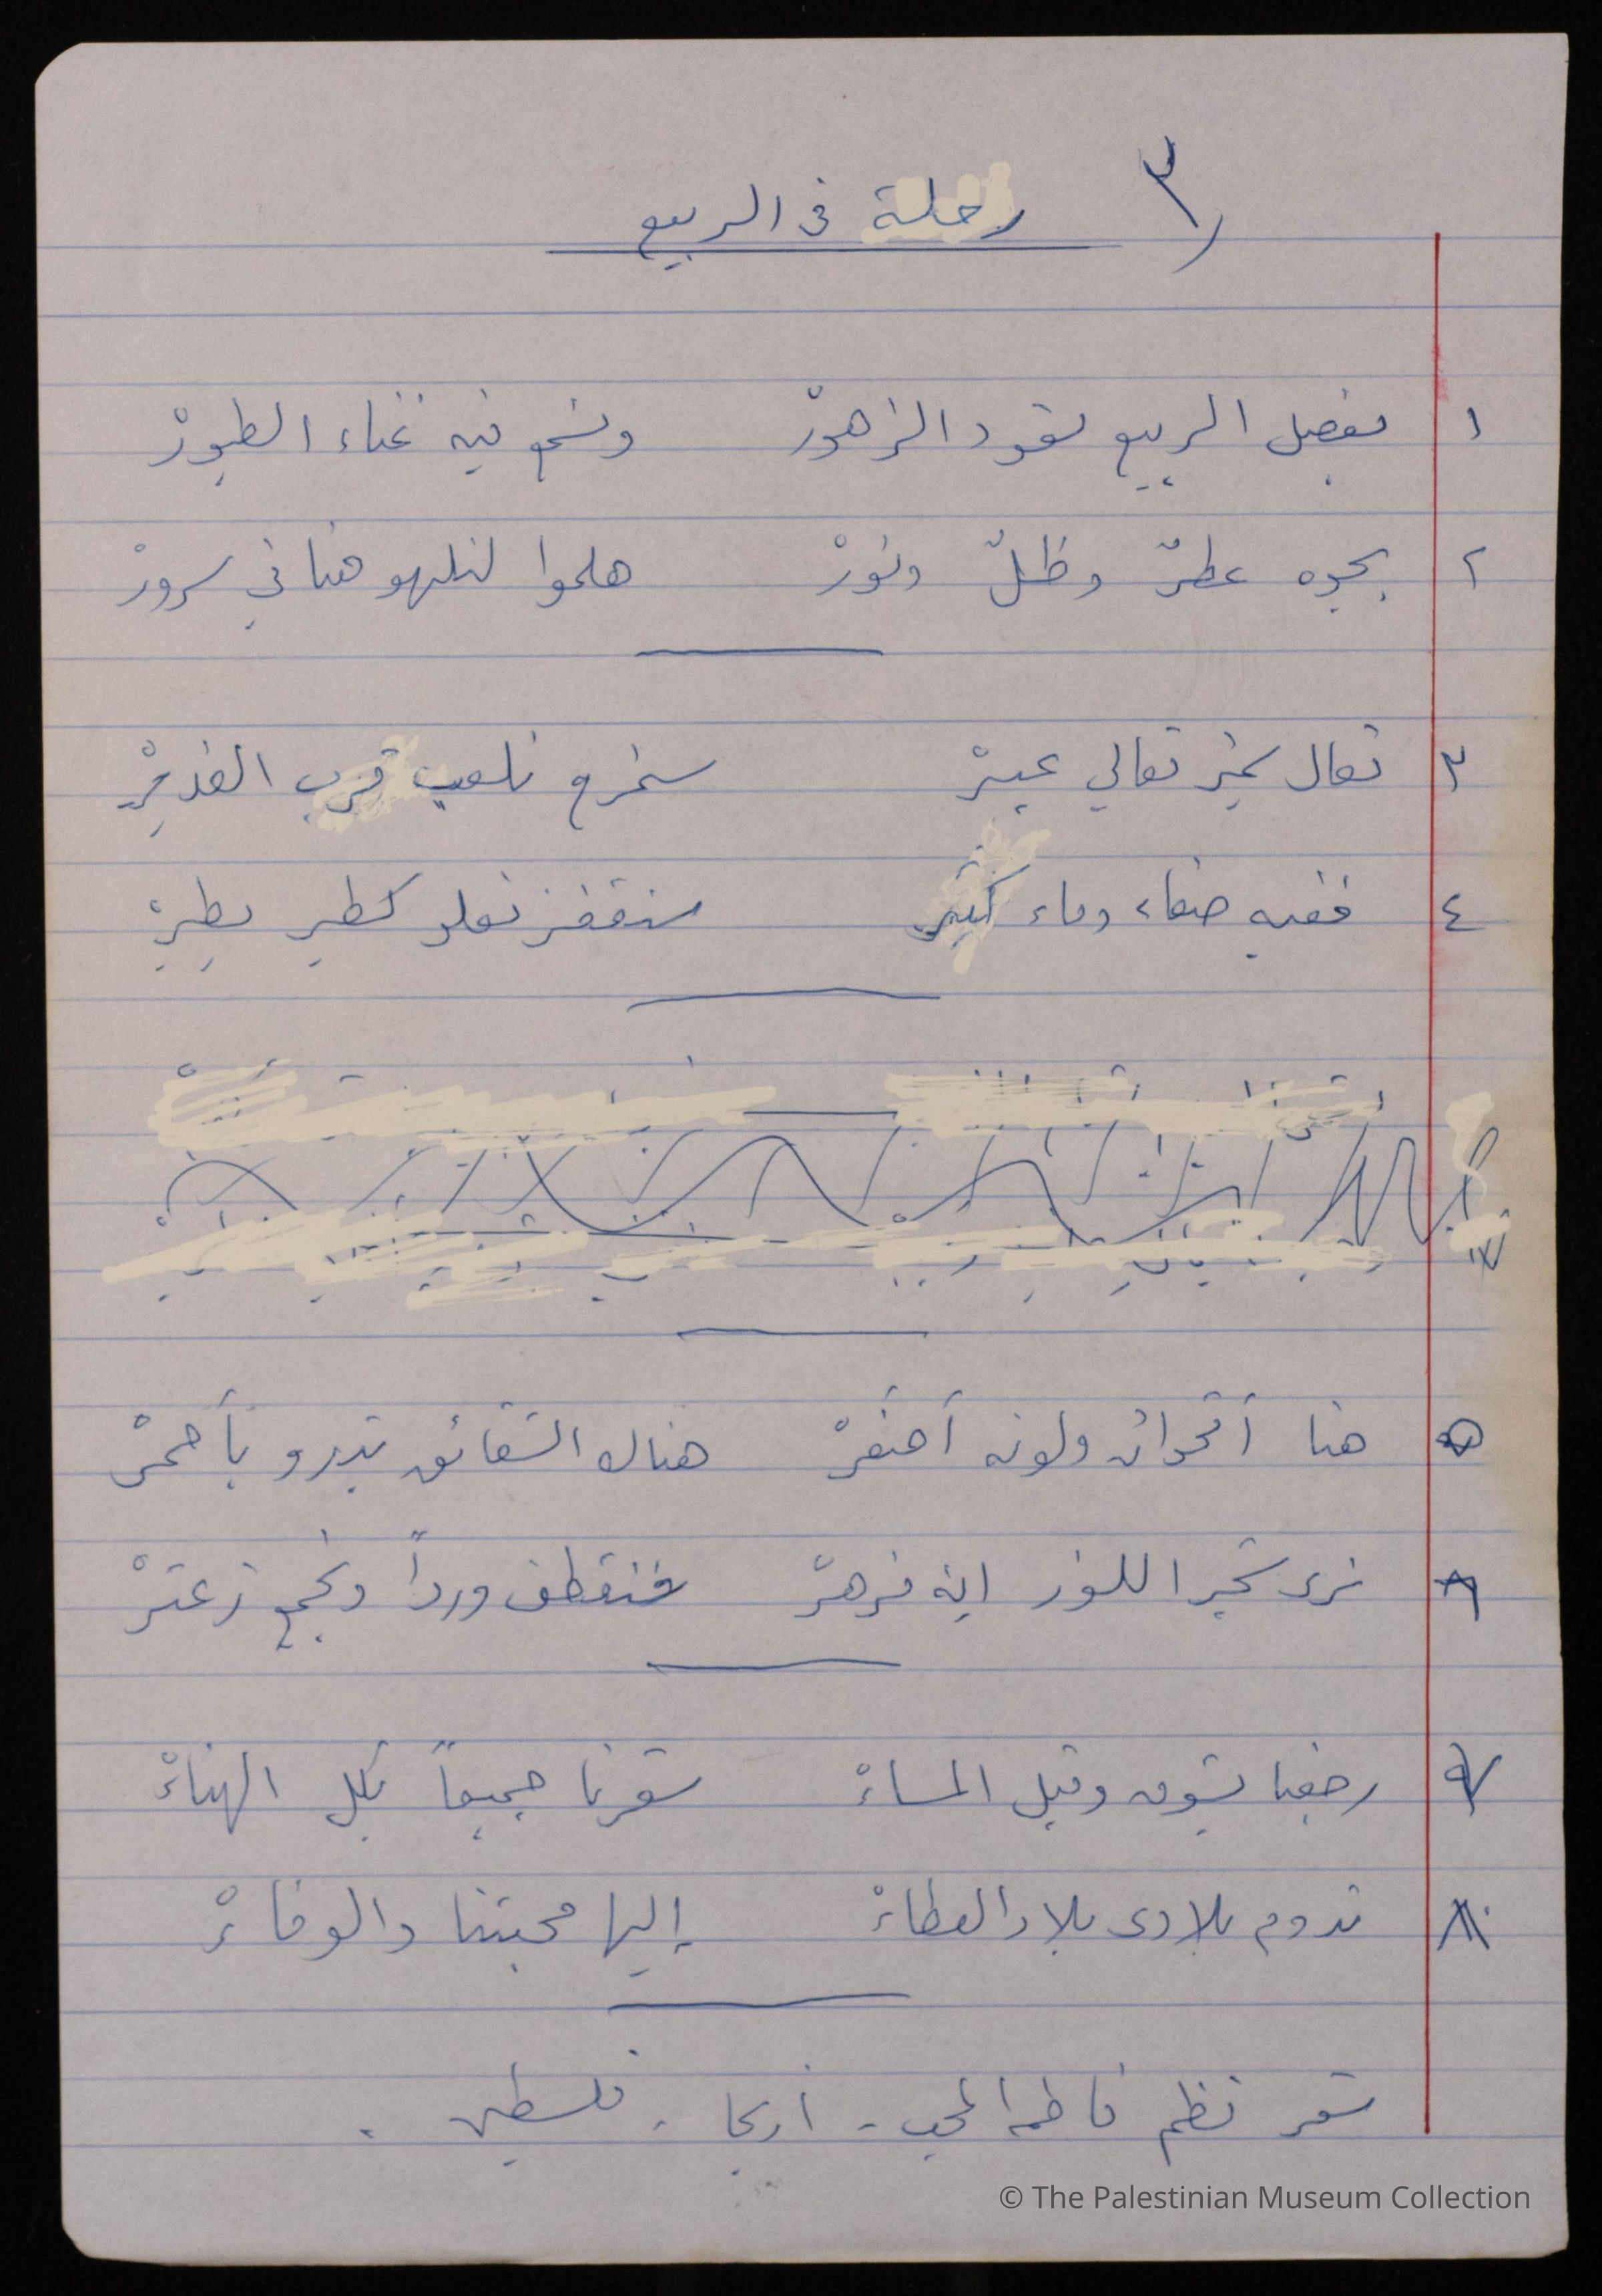 ٣) رحلة في الربيع
١ بفصل الربيع تعود الزهورْ ونسمع فيه غناء الطيورْ
٢ بجوه عطرٌ وظلٌ ونورْ هلموا لنلهو هنا في سرورْ
٣ تعال سمير تعالي عبيرْ سنخرج نلعب قرب الغديرْ
٤ ففيه صفاء وماء كثير سنقفز نعلو كطير يطيرْ
٥ هنا أقحوان ولونه أصفرْ هناك الشقائق تبدو بأحمرْ
٦ نرى شجر اللوز إنه مزهرْ فنقطف ورداً ونجمع زعترْ
٧ رجعنا بشوق وقبل المساءْ شعرنا جميعاً بكل الهناءْ
٨ تدوم بلادي بلاد العطاءْ إليها محبتنا والوفاءْ
شعر نظم فاطمة المحب - أريحا - فلسطين .
© The Palestinian Museum Collection